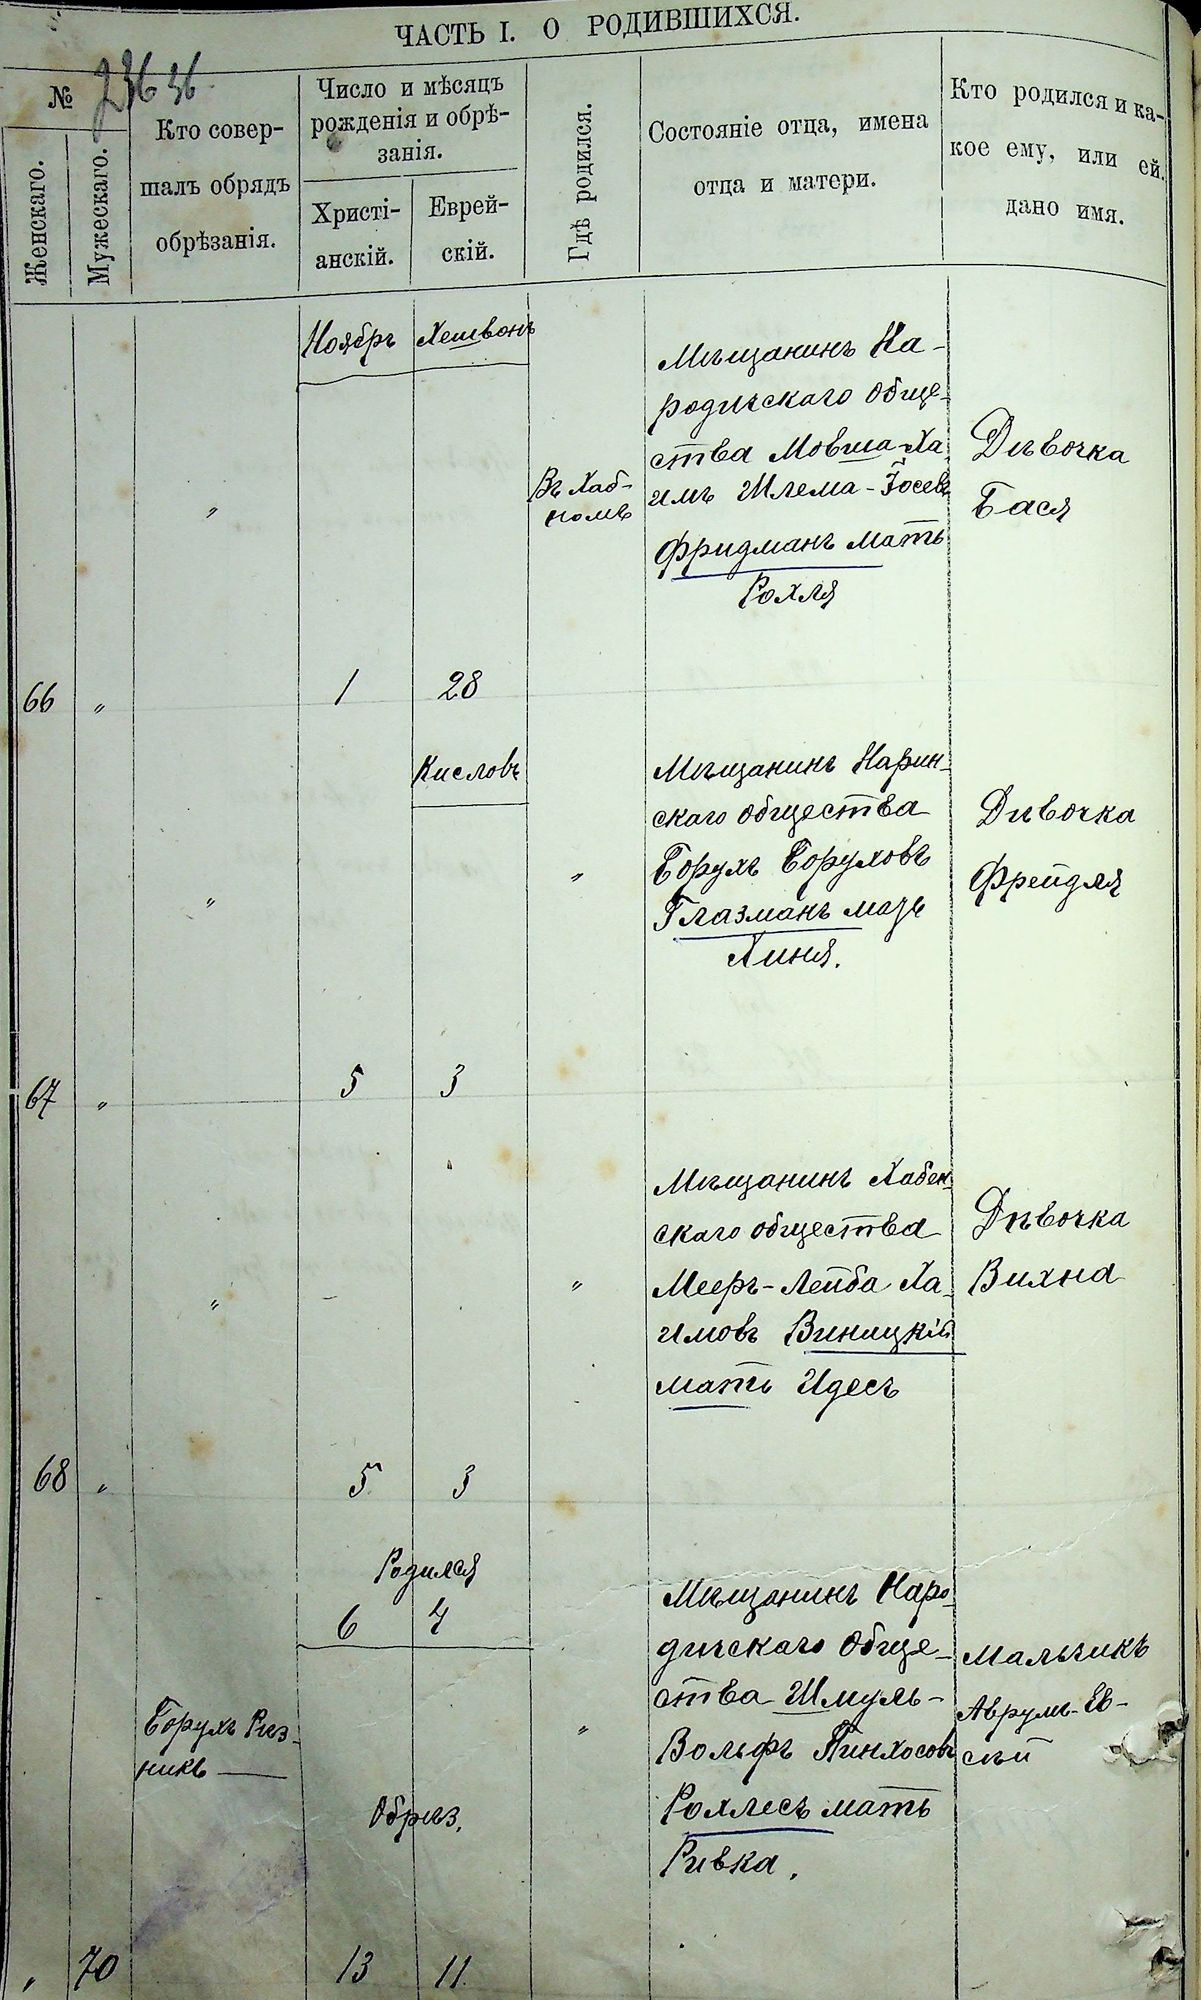 ЧАСТЬ I. О РОДИВШИХСЯ.
№
Женскаго.
Мужескаго.
Кто совер-
шалъ обрядъ
обрѣзанія.
Число и мѣсяцъ
рожденія и обрѣ-
занія.
Христі-
анскій.
Еврей-
скій.
Гдѣ родился.
Состояніе отца, имена
отца и матери.
Кто родился и ка-
кое ему, или ей,
дано имя.
Ноябрь Хешвонъ
Мѣщанинъ На-
родичскаго обще-
ства Мовша-Ха-
имъ Шлема-Іосевъ
Фридманъ мать
Рохля
Въ Хаб-
номъ
Дѣвочка
Бася
"
66 " 1 28
Кисловъ
Мѣщанинъ Нарин-
скаго общества
Борухъ Боруховъ
Глазманъ мать
Хиня.
Дѣвочка
Фрейдля
" "
67 " 5 3
Мѣщанинъ Хабен-
скаго общества
Мееръ-Лейба Ха-
имовъ Виницкій
мать Идесъ
Дѣвочка
Вихна
" "
68 " 5 3
Родился
6 4
Борухъ Рѣз-
никъ
Обрѣз.
"
Мѣщанинъ Наро-
дичскаго обще-
ства Шмуль-
Вольфъ Пинхосовъ
Рохлесъ мать
Ривка.
Мальчикъ
Аврумъ-Ев-
сѣй
" 70 13 11